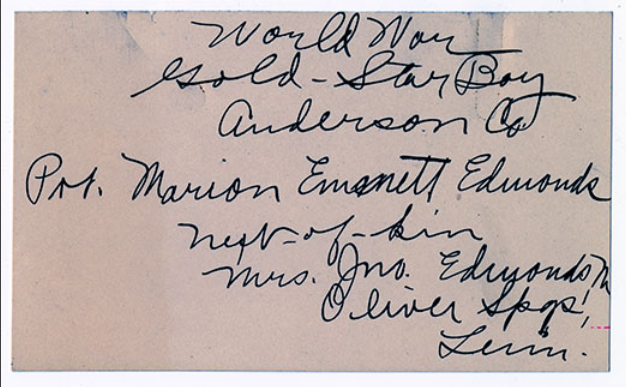 World War
Gold-Star Boy
Anderson Co
Pvt. Marion Emmett Edmonds
next-of-kin
Mrs. Jno. Edmonds, M
Oliver Spgs,
Tenn.